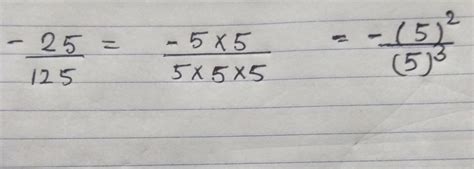 - 25/125 = -5×5/5×5×5 = -(5)²/(5)³